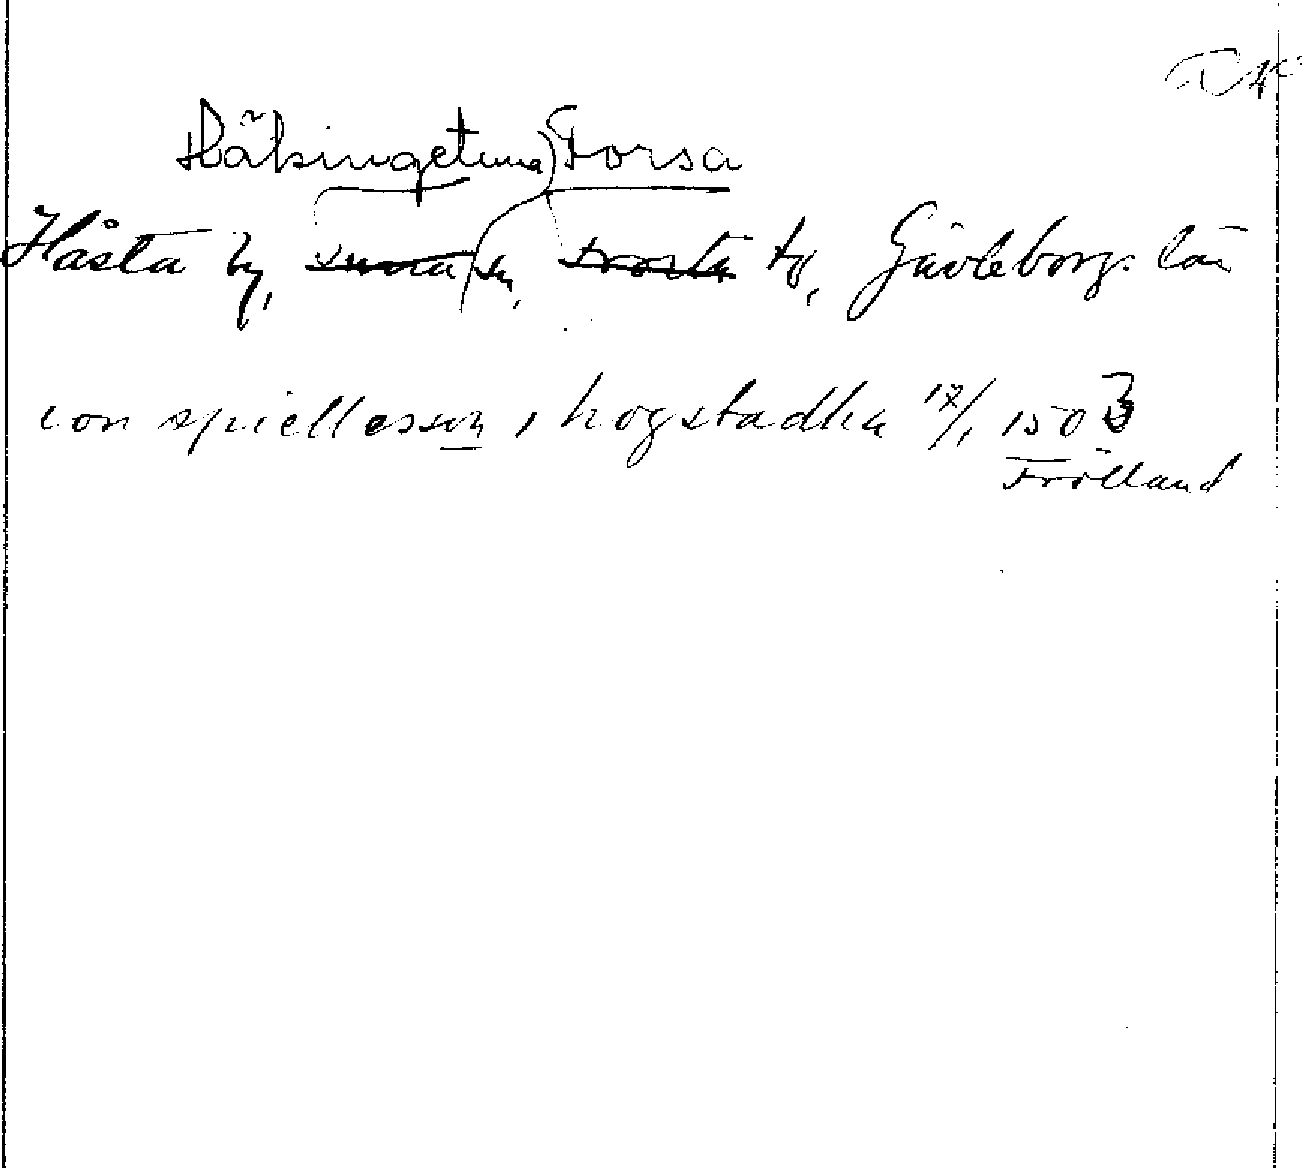 Hälsingetuna Forsa
Håsta by, sn, to, Gävleborgs län
ion spiellesson i hogstadha 17/1 1503
Frölland